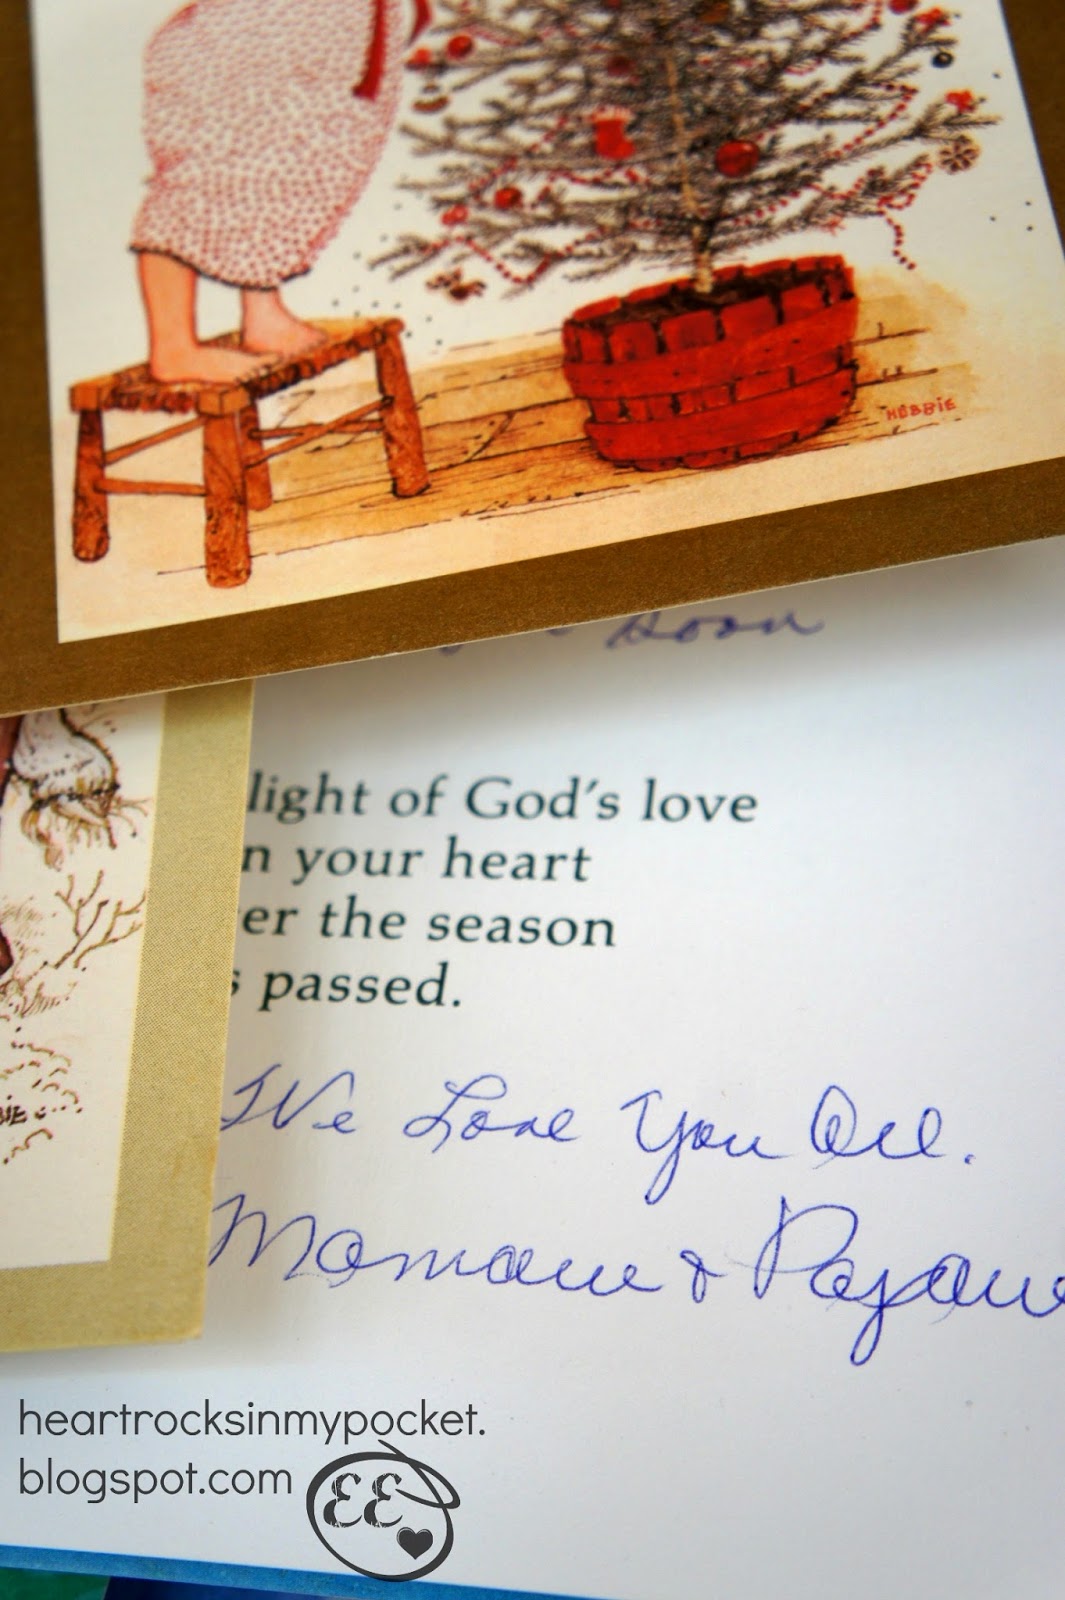 HOBBIE
Soon
light of God's love
n your heart
er the season
s passed.
We Love You All.
& 
heartrocksinmypocket.
blogspot.com
EE